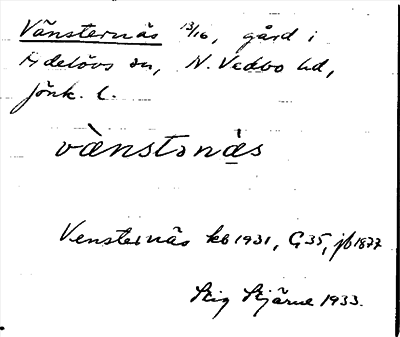 Vänsternäs 13/16, gård i
Adelövs sn, N. Vedbo hd,
Jönk. l.
vànstənà̤s
Vensternäs kb 1931, G35, jb 1877
Stig Stjärne 1933.